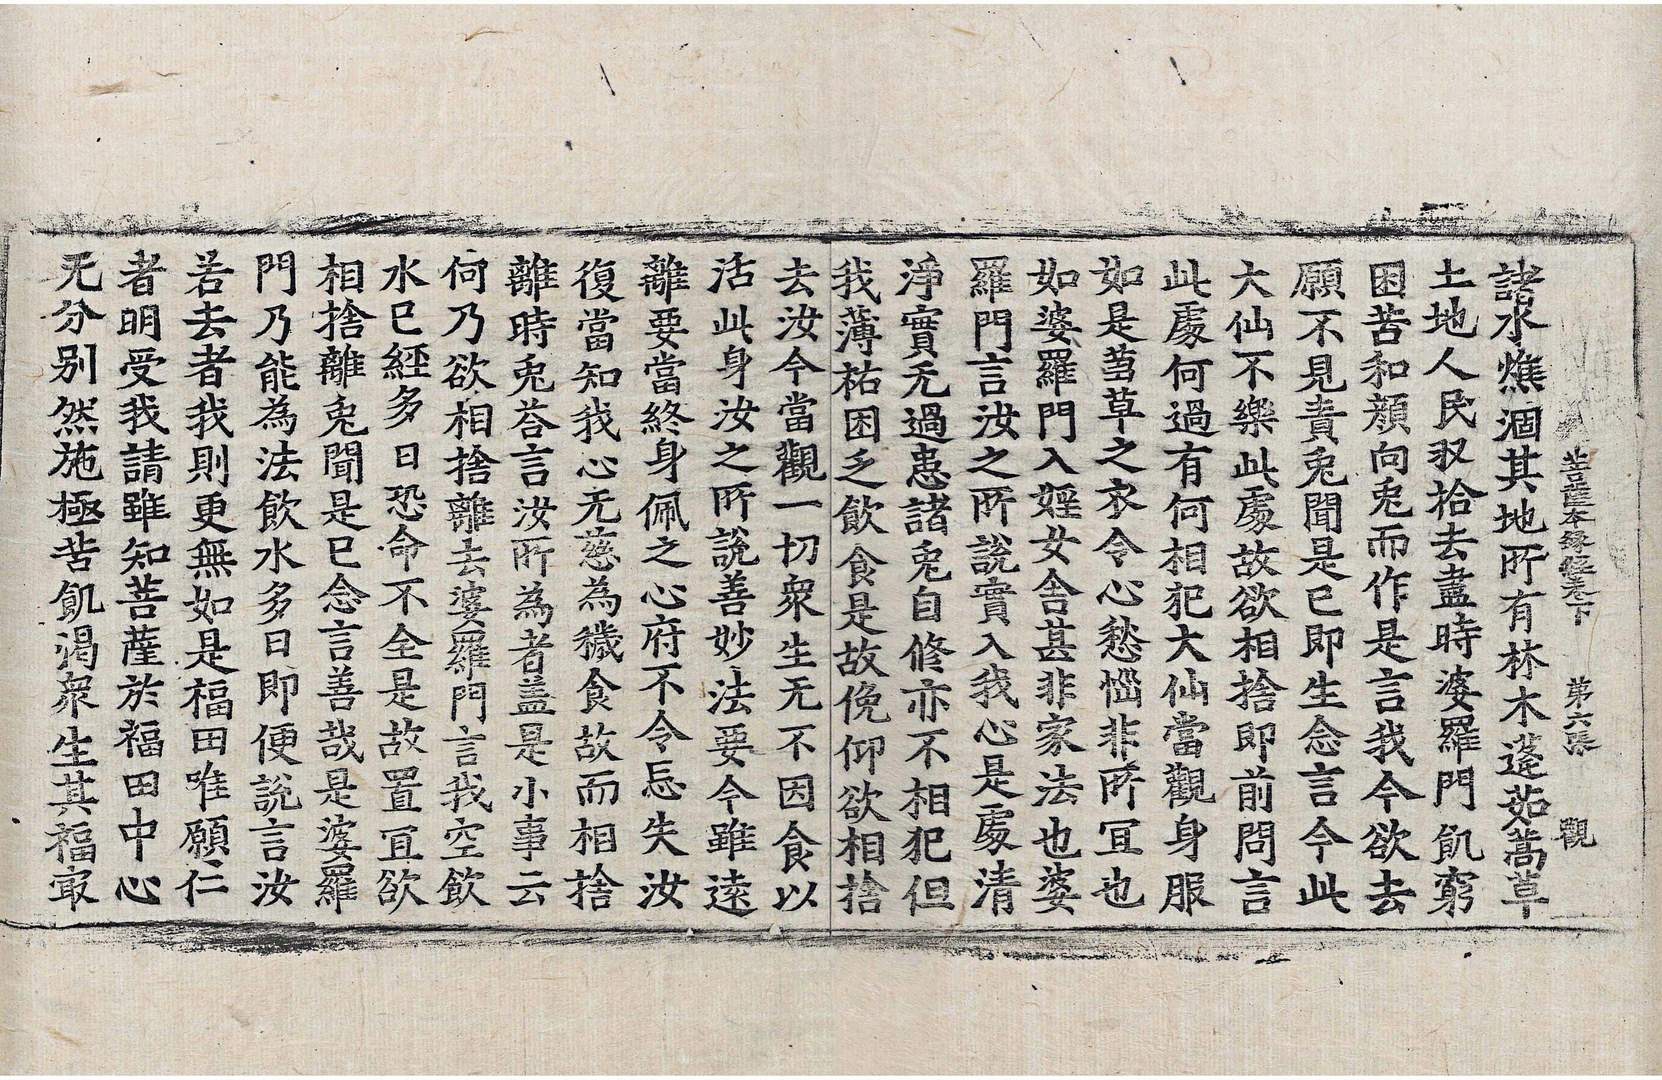 菩薩本緣經卷下　第六張　觀
諸水燋涸其地所有林木蓬茹蒿草
土地人民収拾去盡時婆羅門飢窮
困苦和顔向兎而作是言我今欲去
願不見責兎聞是已即生念言今此
大仙不樂此處故欲相捨即前問言
此處何過有何相犯大仙當觀身服
如是𦮼草之衣令心愁惱非所冝也
如婆羅門入婬女舎甚非家法也婆
羅門言汝之所說實入我心是處清
淨實无過患諸兎自修亦不相犯但
我薄祐困乏飲食是故俛仰欲相捨
去汝今當觀一切衆生无不因食以
活此身汝之所說善妙法要今雖遠
離要當終身佩之心府不令忘失汝
復當知我心无慈為穢食故而相捨
離時兎荅言汝所為者盖是小事云
何乃欲相捨離去婆羅門言我空飲
水已經多日恐命不全是故置冝欲
相捨離兎聞是已念言善哉是婆羅
門乃能為法飲水多日即便說言汝
若去者我則更無如是福田唯願仁
者明受我請雖知菩薩於福田中心
无分别然施極苦飢渴衆生其福㝡